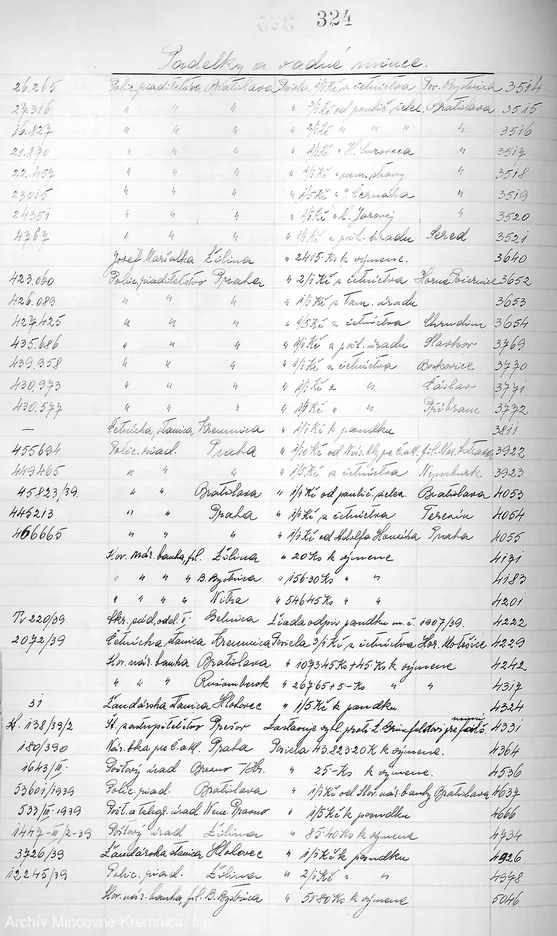 324
Padelky a vadné mince.
26.265 Polic. riaditeľstvo Bratislava Posiela 1/1 Kč z četníctva Pov. Bystrica 3514
27.316 " " " " Kč od pošt. Bratislava 3515
16.827 " " " " Kč " " " " 3516
21.870 " " " " 1/1 Kč " H. " 3517
22.457 " " " " 1/1 Kč " strany " 3518
23015 " " " " 1/5 Kč " J. Černáka " 3519
24351 " " " " 1/1 Kč " Jarovej " 3520
4767 " " " " 1/1 Kč z pošt. úradu Sereď 3521
Jozef Maršalka Žilina " 2415 Ks k výmene. 3640
423.060 Polic. riaditeľstvo Praha " 2/1 Kč z četníctva Horné 3652
426.083 " " " " 1/1 Kč z úradu 3653
427.425 " " " " 1/5 Kč z četníctva Chrudim 3654
435.686 " " " " 1/1 Kč z pošt. úradu 3769
439.958 " " " " 1/1 Kč z četníctva Boskovice 3770
430.973 " " " " 1/1 Kč z " Čáslav 3771
430.577 " " " " 1/1 Kč z " Příbram 3772
— Četnícka stanica Kremnica " 1/1 Kč k posudku 3811
455694 Polic. riad. Praha " Kč od Nár. bky 3922
449465 " " " " 1/5 Kč z četníctva Nymburk 3923
45823/39. " " Bratislava " 1/1 Kč Bratislava 4053
445213 " " Praha " 1/1 Kč z četníctva Terezín 4054
466665 " " " " 1/1 Kč od Adolfa Praha 4055
Slov. nár. banka, fil. Žilina " 20 Ks k výmene 4171
" " " " B. Bystrica " 15630 Ks " " 4183
" " " " Nitra " 54645 Ks " " 4201
Tv 220/39 Belnica Žiada odpis posudku m. č. 1907/39. 4222
2072/39 Četnícka stanica Kremnica Posiela 3/1 Kč z četníctva Hor. 4229
Slov. nár. banka Bratislava " 107345 Ks + 45 Ks k výmene 4242
" " " Ružomberok " 26765 + 5 - Ks " " 4317
31 Žandárska stanica Hlohovec " 1/5 Kč k posudku 4324
St. 138/39/2 Št. zastupiteľstvo Prešov 4331
180/390 Nár. bka pre Č. a M. Praha Posiela 4382320 K výmene. 4364
1643/III- Poštový úrad Brezno /Hr. " 25 - Ks k výmene. 4536
53601/1939 Polic. riad. Bratislava " 1/1 Kč od Slov. nár. banky Bratislava 4637
533/III-1939 Pošt. a telegr. úrad " 1/5 Kč k posudku 4666
1447-III/2-39 Poštový úrad Žilina " 8540 Ks k výmene 4734
3726/39 Žandárska stanica, Hlohovec " 1/1 Kč k posudku 4926
12245/39 Polic. riad. Žilina " 2/1 Kč " " 4978
Slov. nár. banka, fil. B. Bystrica " 5180 Ks k výmene 5046
Archív Mincovne Kremnica, š.p.